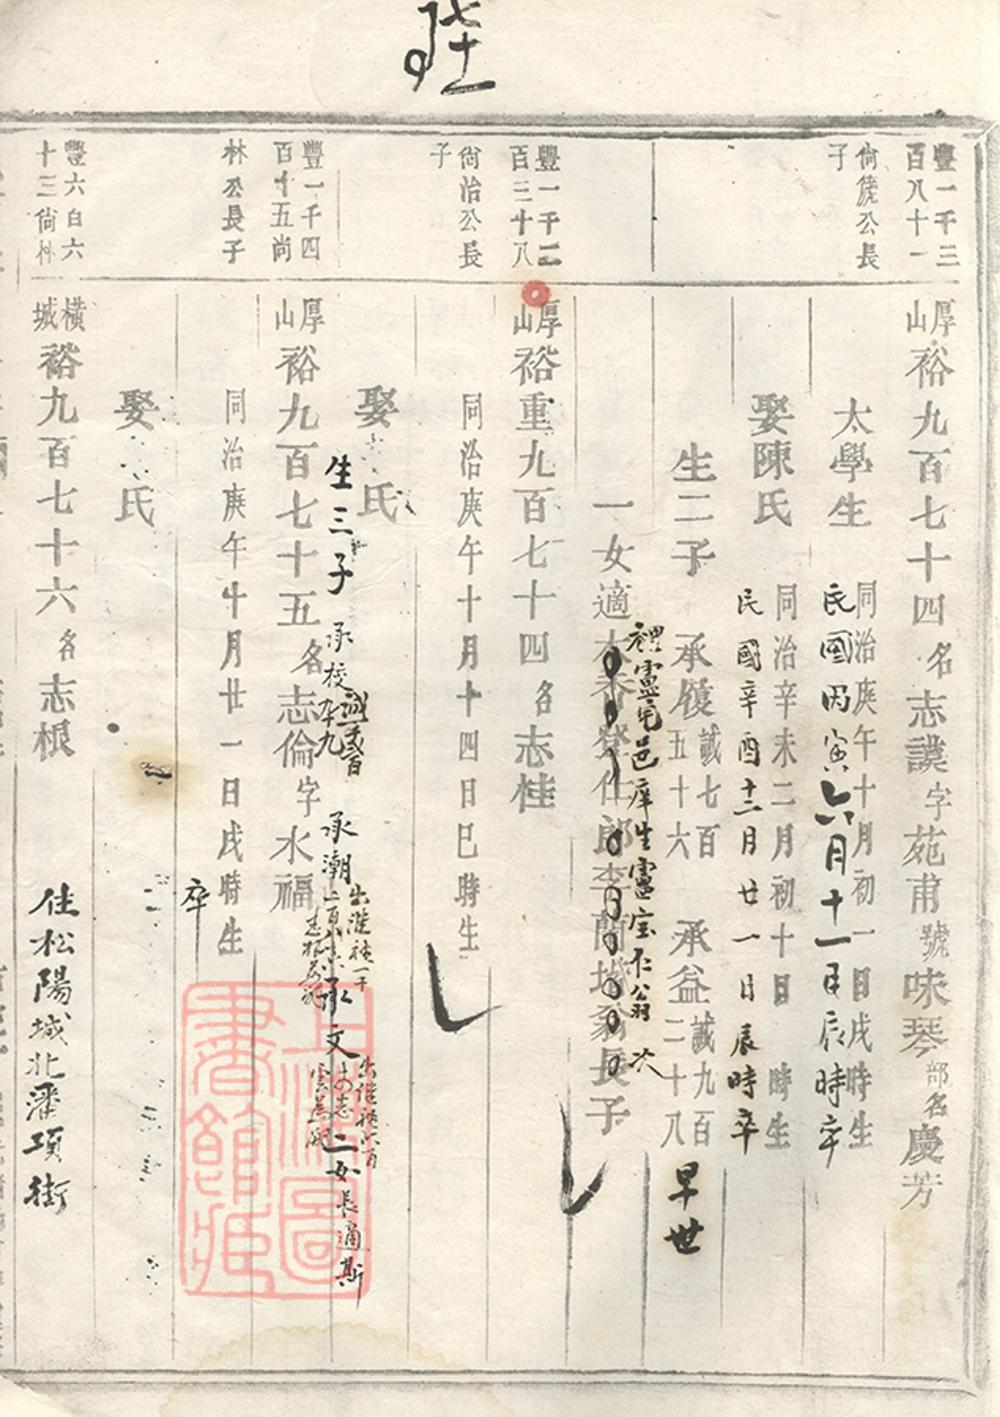 陞
豐一千三
百八十一
尙箎公長
子
厚
山
裕九百七十四名志讃字苑甫號味琴部名慶芳
太學生
同治庚午十月初一日戌時生
民國丙寅六月十一日辰時卒
娶陳氏
同治辛未二月初十日時生
民國辛酉十二月廿一日辰時卒
生二子
承履
誠七百
五十六
承益
誠九百
二十八
早世
一女適
登仕郎李蘭城翁長子
禮靈宅邑庠生靈宝仁翁次
豐一千二
百三十八
尙治公長
子
厚
山
裕重九百七十四名志桂
同治庚午十月十四日巳時生
娶氏
生三子
承校
卒九
承潮
承文
二女長適斯
豐一千四
百十五尚
林公長子
厚
山
裕九百七十五名志倫字水福
同治庚午十月廿一日戌時生
卒
娶氏
豐六百六
十三尙林
橫
城
裕九百七十六名志根
住松陽城北潘項街
上海圖
書館藏